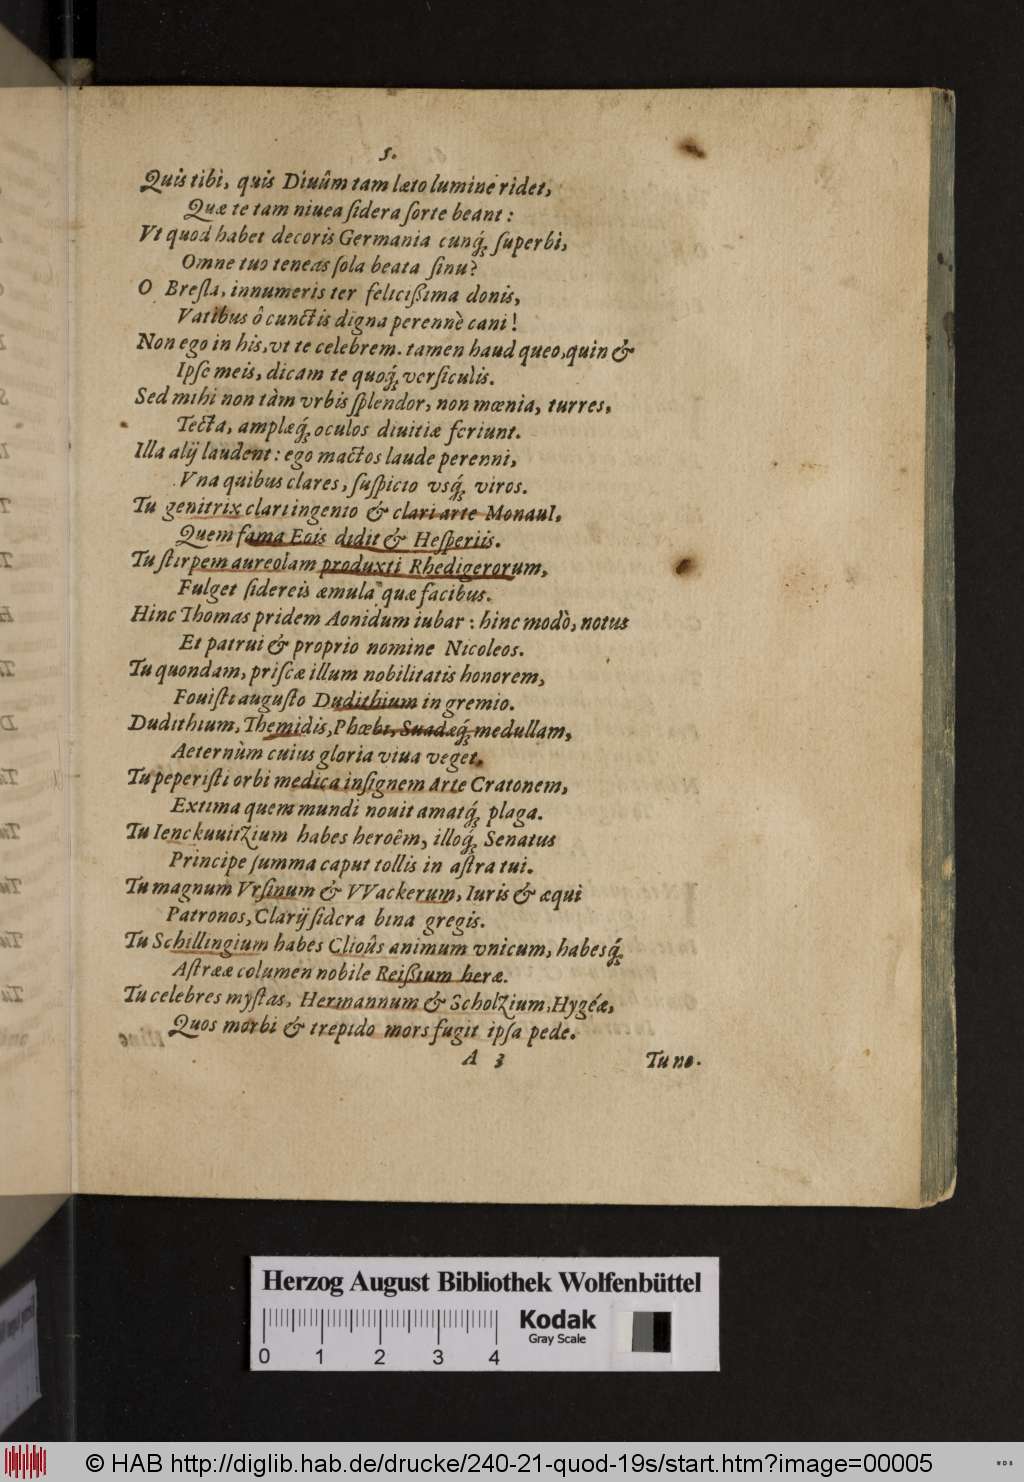 5.
Quis tibi, quis Diuûm tam læto lumine ridet,
Quæ te tam niuea ſidera ſorte beant:
Vt quod habet decoris Germania cunq́; ſuperbi,
Omne tuo teneas ſola beata ſinu?
O Breſla, innumeris ter felicißima donis,
Vatibus ô cunctis digna perennè cani!
Non ego in his, vt te celebrem. tamen haud queo, quin &
Ipſe meis, dicam te quoq́; verſiculis.
Sed mihi non tàm vrbis ſplendor, non mœnia, turres,
Tecta, amplæq́; oculos diuitiæ feriunt.
Illa alij laudent: ego mactos laude perenni,
Vna quibus clares, ſuſpicio vsq́; viros.
Tu genitrix clari ingenio & clari arte Monaul,
Quem fama Eois didit & Heſperiis.
Tu ſtirpem aureolam produxti Rhedigerorum,
Fulget ſidereis æmula quæ facibus.
Hinc Thomas pridem Aonidum iubar: hinc modò, notus
Et patrui & proprio nomine Nicoleos.
Tu quondam, priſcæ illum nobilitatis honorem,
Fouiſti auguſto Dudithium in gremio.
Dudithium, Themidis, Phœbi, Suadæq́; medullam,
Aeternùm cuius gloria viua veget.
Tu peperiſti orbi medica inſignem Arte Cratonem,
Extima quem mundi nouit amatq́; plaga.
Tu Ienckuuitzium habes heroêm, illoq́; Senatus
Principe ſumma caput tollis in aſtra tui.
Tu magnum Vrſinum & VVackerum, Iuris & æqui
Patronos, Clarij ſidera bina gregis.
Tu Schillingium habes Clioûs animum vnicum, habesq́;
Aſtrææ columen nobile Reißium heræ.
Tu celebres myſtas, Hermannum & Scholzium, Hygéæ,
Quos morbi & trepido mors fugit ipſa pede.
A 3
Tu ne.
Herzog August Bibliothek Wolfenbüttel
Kodak
Gray Scale
0 1 2 3 4
© HAB http://diglib.hab.de/drucke/240-21-quod-19s/start.htm?image=00005